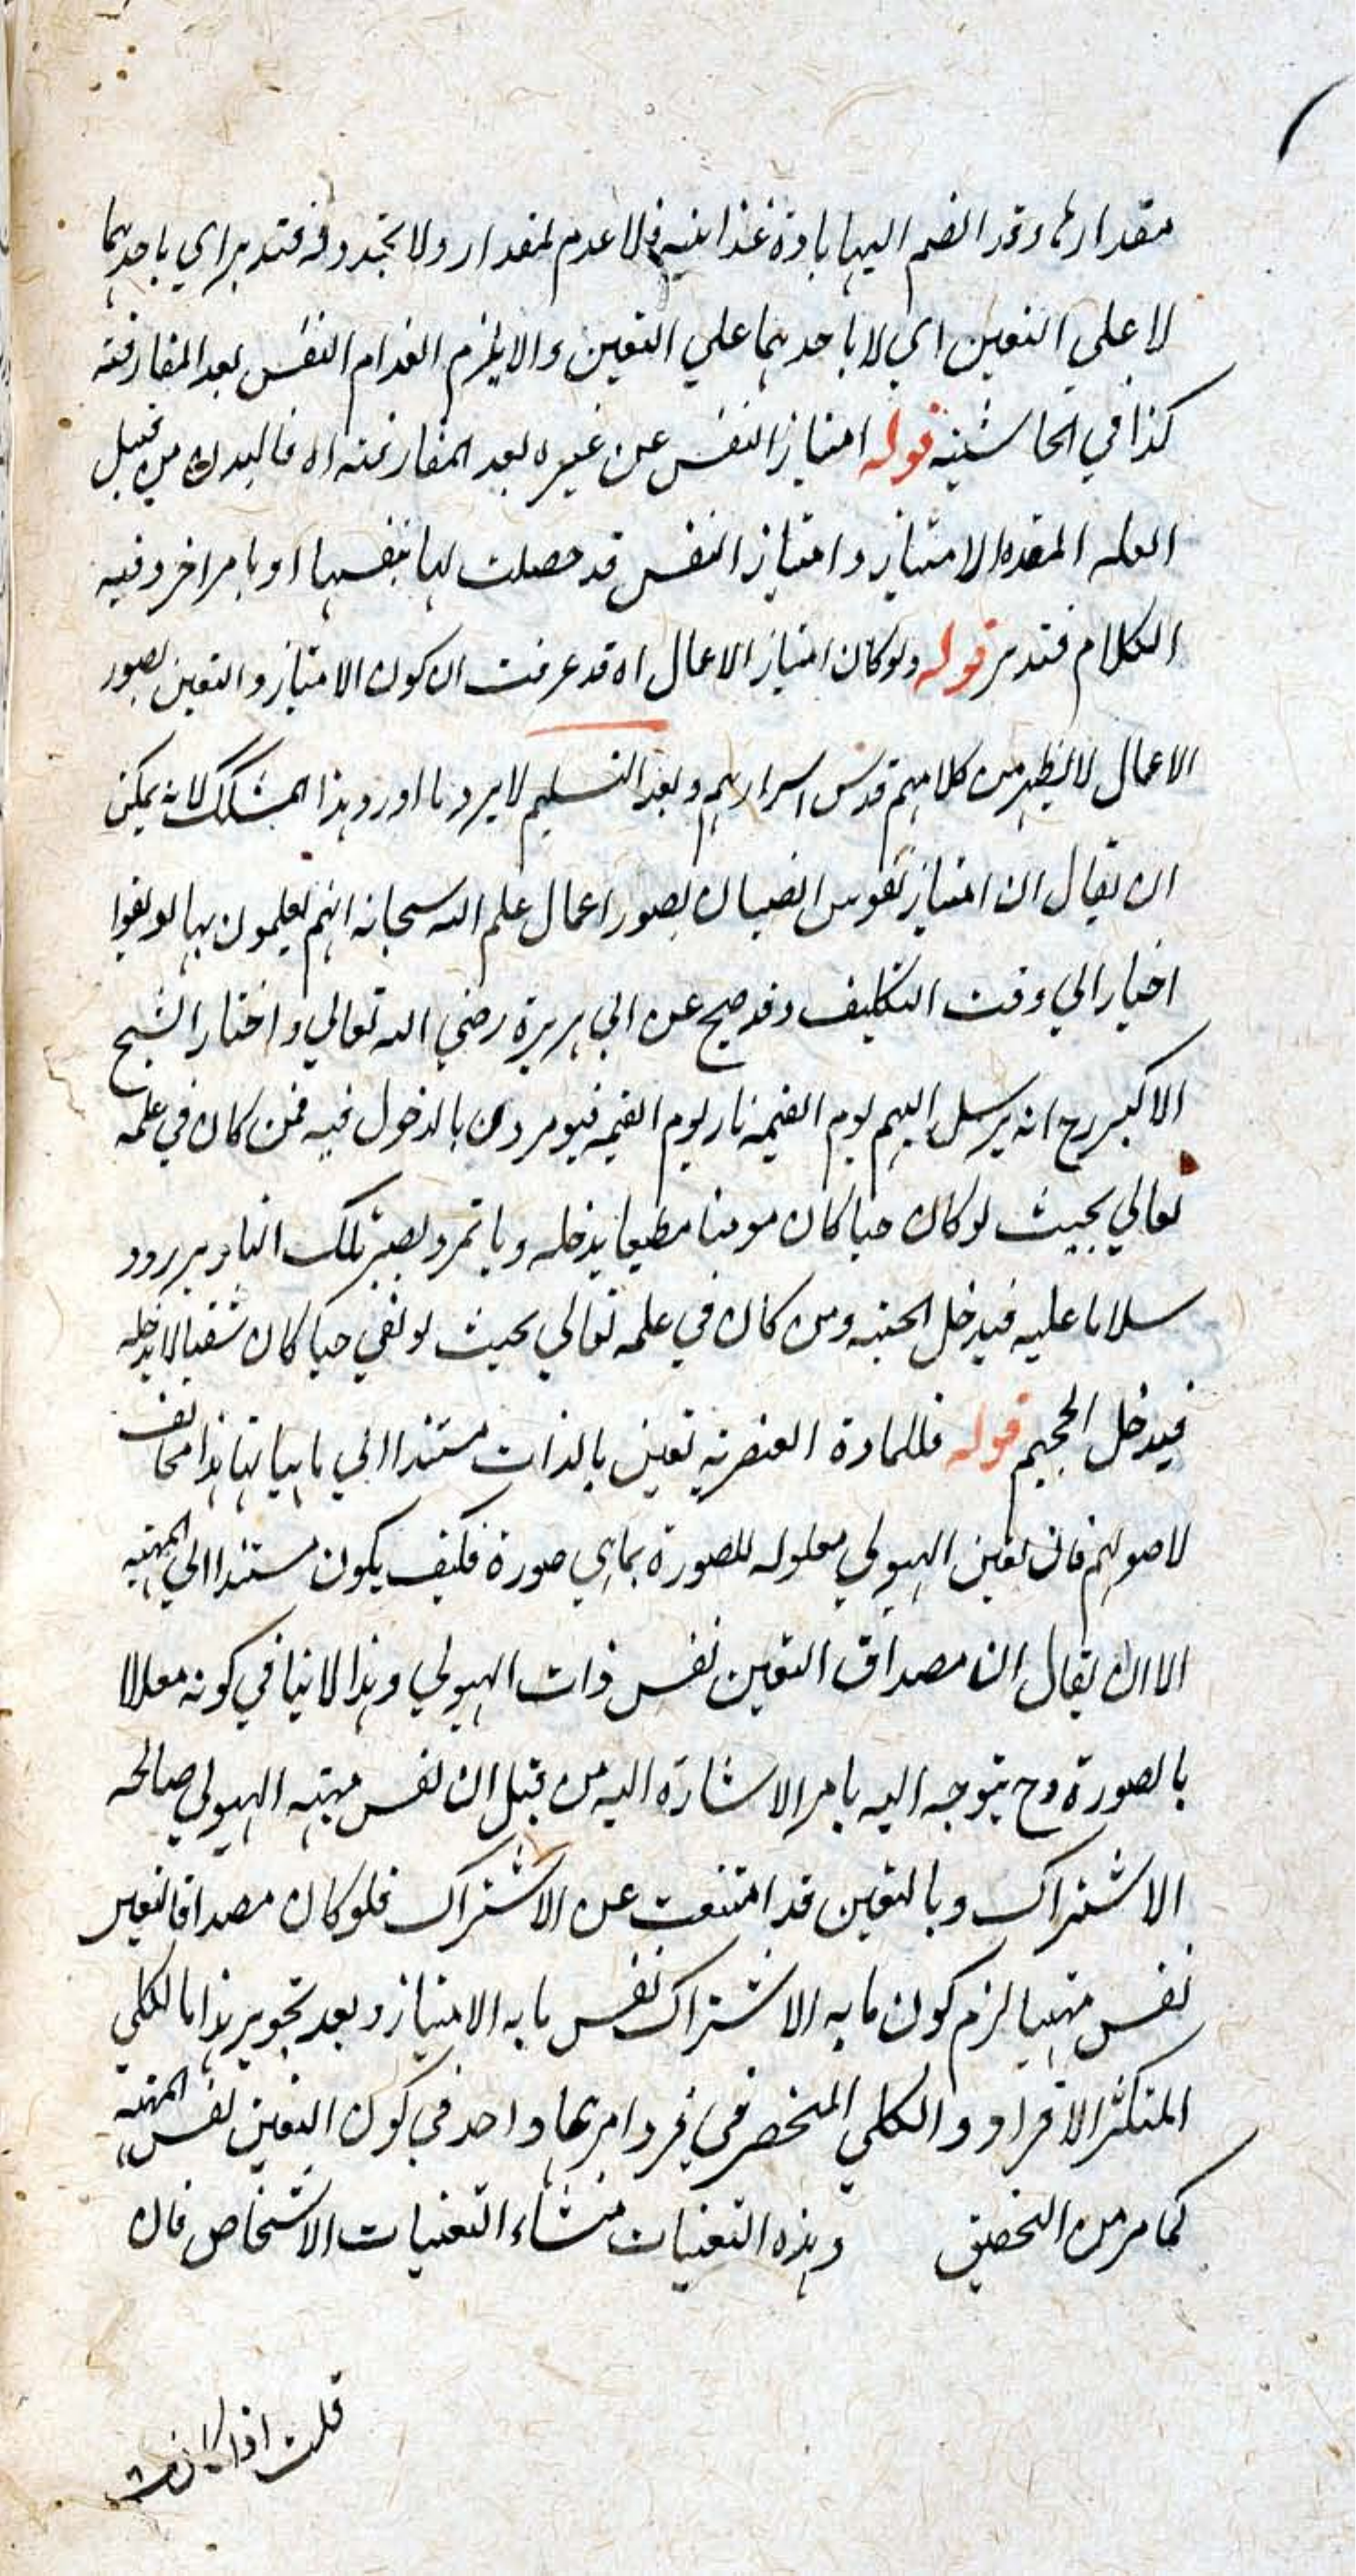 مقدارها وقد انضم اليها مادة غذائية فلا عدم لمقدار ولا تجدد فيه فتدبر اي باحدهما
لا علي التعين اي لا باحدهما علي التعين والا يلزم انعدام النفس بعد المفارقته
كذا في الحاشية قوله امتياز النفس عن غيره بعد المفارقته اه فالبدن من قبيل
العله المعده الامتياز وامتياز النفس قد حصلت لها بنفسها او بامر اخر وفيه
الكلام فتدبر قوله ولو كان امتياز الاعمال اه قد عرفت ان كون الامتياز والتعين بصور
الاعمال لا يظهر من كلامهم قدس اسرارهم وبعد التسليم لا يرد ما اورد هذا المشكك لانه يمكن
ان يقال ان امتياز نفوس الصبيان بصور اعمال علم الله سبحانه انهم يعلمون بها لو بقوا
اخيارا الي وقت التكليف وقد صح عن ابي هريرة رضي الله تعالي واختار الشيخ
الاكبر رح انه يرسل اليهم يوم القيمة نار يوم القيمه فيومردن بالدخول فيه فمن كان في علمه
تعالي بحيث لو كان حيا كان مومنا مطيعا يدخله وياتمر ويصير تلك النار بررود
سلاما عليه فيدخل الجنه ومن كان في علمه تعالي بحيث لو بقي حيا كان شقيا لا يدخله
فيدخل الجحيم قوله فللمادة العنصرية تعين بالذات مستندا الي ماهياتها هذا مخالف
لاصولهم فان تعين الهيولي معلوله للصورة بما هي صورة فكيف يكون مستندا الي المهيه
الا ان يقال ان مصداق التعين نفس ذات الهيولي وهذا لا ينافي كونه معللا
بالصورة وح يتوجه اليه ما مر الاشارة اليه من قبل ان نفس مهيه الهيولي صالحه
الاشتراك وبالتعين قد امتنعت عن الاشتراك فلو كان مصداق التعين
نفس مهيها لزم كون ما به الاشتراك نفس ما به الامتياز وبعد تجويز هذا ما الكلي
المتكثر الافراد والكلي المنحصر في فرد امرهما واحد في كون التعين نفس المهيه
كما مر من التحقيق وهذه التعنيات منشاء التعنيات الاشخاص فان
قلت اذا كان